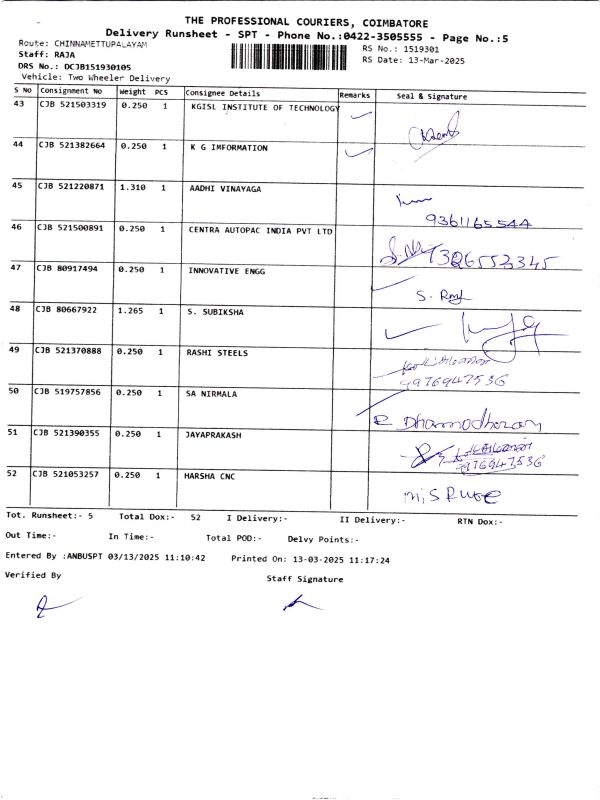 THE PROFESSIONAL COURIERS, COIMBATORE
Delivery Runsheet - SPT - Phone No.:0422-3505555 - Page No.:5
Route: CHINNAMETTUPALAYAM
RS No.: 1519301
Staff: RAJA
RS Date: 13-Mar-2025
DRS No.: DCJB151930105
Vehicle: Two Wheeler Delivery
S No Consignment No Weight PCS Consignee Details Remarks Seal & Signature
43 CJB 521503319 0.250 1 KGISL INSTITUTE OF TECHNOLOGY
44 CJB 521382664 0.250 1 K G IMFORMATION
45 CJB 521220871 1.310 1 AADHI VINAYAGA
9361165544
46 CJB 521500891 0.250 1 CENTRA AUTOPAC INDIA PVT LTD
47 CJB 80917494 0.250 1 INNOVATIVE ENGG
48 CJB 80667922 1.265 1 S. SUBIKSHA
49 CJB 521370888 0.250 1 RASHI STEELS
9976947536
50 CJB 519757856 0.250 1 SA NIRMALA
R Dhamodharan
51 CJB 521390355 0.250 1 JAYAPRAKASH
9976947536
52 CJB 521053257 0.250 1 HARSHA CNC
Tot. Runsheet:- 5 Total Dox:- 52 I Delivery:- II Delivery:- RTN Dox:-
Out Time:- In Time:- Total POD:- Delvy Points:-
Entered By :ANBUSPT 03/13/2025 11:10:42 Printed On: 13-03-2025 11:17:24
Verified By
Staff Signature